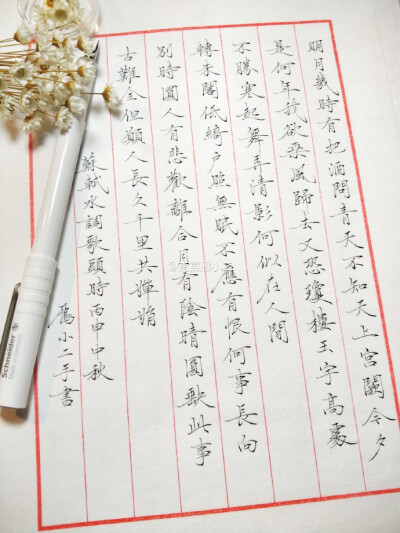 明月幾時有把酒問青天不知天上宮闕今夕
是何年我欲乘風歸去又恐瓊樓玉宇高處
不勝寒起舞弄清影何似在人間
轉朱閣低綺戶照無眠不應有恨何事長向
別時圓人有悲歡離合月有陰晴圓缺此事
古難全但願人長久千里共嬋娟
蘇軾水調歌頭時丙申中秋
雁小二手書
Schneider